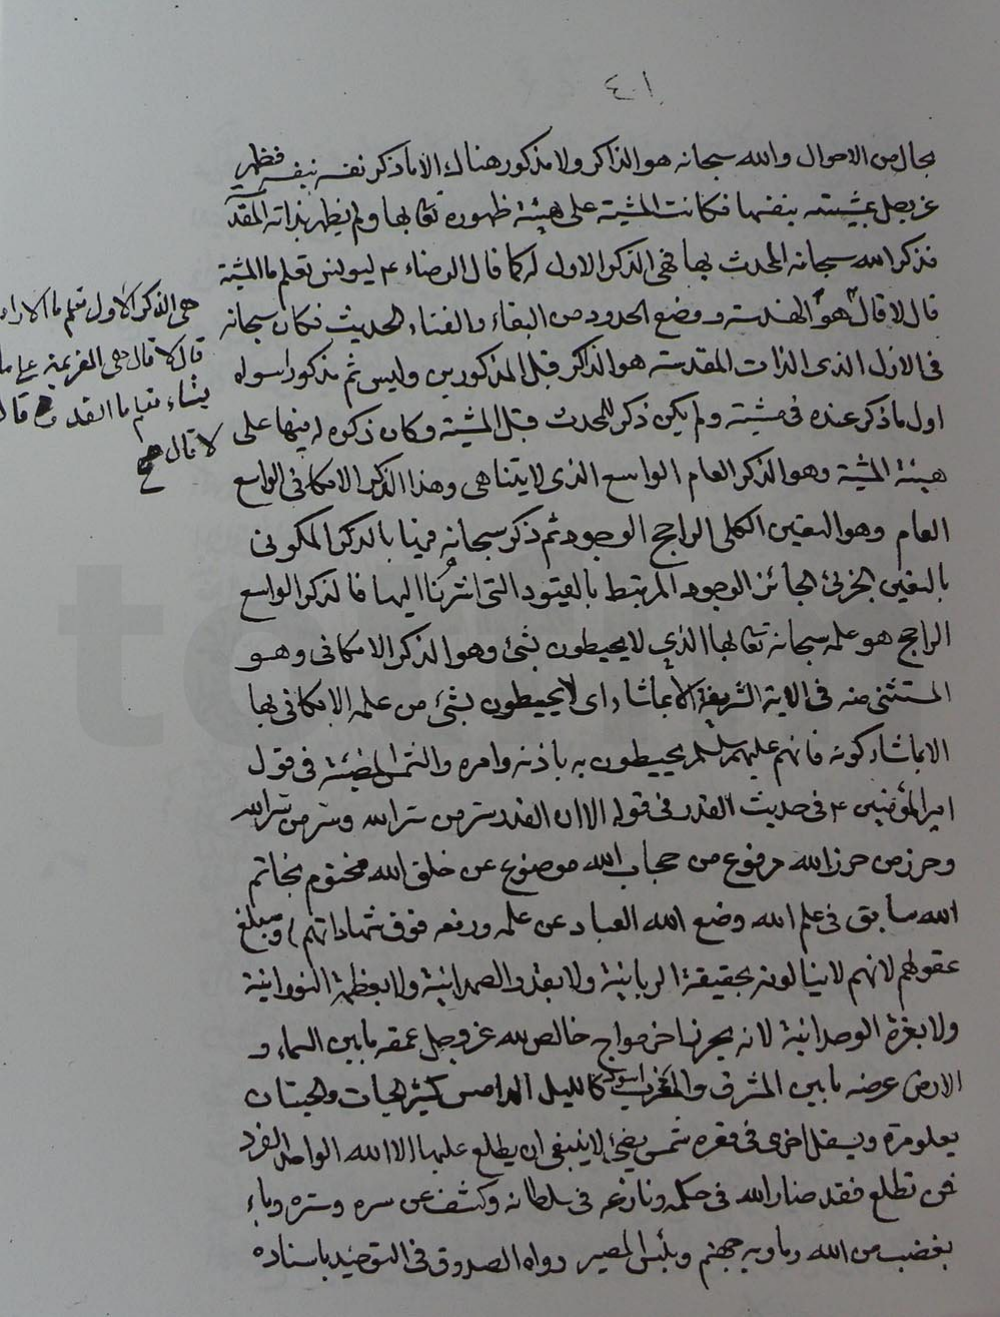 ٤٠١
بحال من الاحوال والله سبحانه هو الذاكر ولا مذكور هناك الا ما ذكر نفسه بنفسه فظهر
عز وجل بمشيته بنفسها فكانت المشية على هيئة ظهوره تعا بها ولم يظهر بذاته المقدسة
فذكر الله سبحانه المحدث بها فهى الذكر الاول له كما قال الرضاء ٤ ليونس تعلم ما المشية
قال لا قال هو الهندسة ووضع الحدود من البقاء والفناء الحديث فكان سبحانه
فى الازل الذى الذات المقدسة هو الذاكر قبل المذكورين وليس ثم مذكورا سواه
اول ما ذكر عنده فى مشيته ولم يكن ذكر للمحدث قبل المشية وكان ذكره له فيها على
هيئة المشية وهو الذكر العام الواسع الذى لا يتناهى وهذا الذكر الامكانى الواسع
العام وهو التعين الكلى الراجح الوجود ثم ذكر سبحانه فينا بالذكر المكونى
بالتعين الجزئى الجائز الوجود المرتبط بالقيود التى اشرنا اليها فالذكر الواسع
الراجح هو علمه سبحانه تعا بها الذى لا يحيطون بشئ وهو الذكر الامكانى وهو
المستثنى منه فى الاية الشريفة الا بما شاء اى لا يحيطون بشئ من علمه الامكانى بها
الا بما شاء كونه فانهم عليهم السلام يحيطون به باذنه وامره والشمس المضيئة فى قول
امير المؤمنين ٤ فى حديث القدر فى قوله الا ان القدر سر من سر الله وستر من ستر الله
وحرز من حرز الله مرفوع من حجاب الله موضوع عن خلق الله مختوم بخاتم
الله سابق فى علم الله وضع الله العباد عن علمه ورفعه فوق شهاداتهم) ومبلغ
عقولهم لانهم لا ينالونه بحقيقة الربانية ولا بقدر الصمدانية ولا بعظمة النورانية
ولا بعزة الوحدانية لانه بحر زاخر مواج خالص لله عز وجل عمقه ما بين السماء و
الارض عرضه ما بين المشرق والمغرب اسود كالليل الدامس كثير الحيات والحيتان
يعلو مرة ويسفل اخرى فى قعره شمس يضئ لا ينبغى ان يطلع عليها الا الله الواحد الفرد
فمن تطلع فقد ضار الله فى حكمه ونازعه فى سلطانه وكشف عن سره وستره وباء
بغضب من الله وماويه جهنم وبئس المصير رواه الصدوق فى التوحيد باسناده
هى الذكر الاول تعلم ما الاراد
قال لا قال هى العزيمة على ما
يشاء تعلم ما القدر قال
لا قال صح